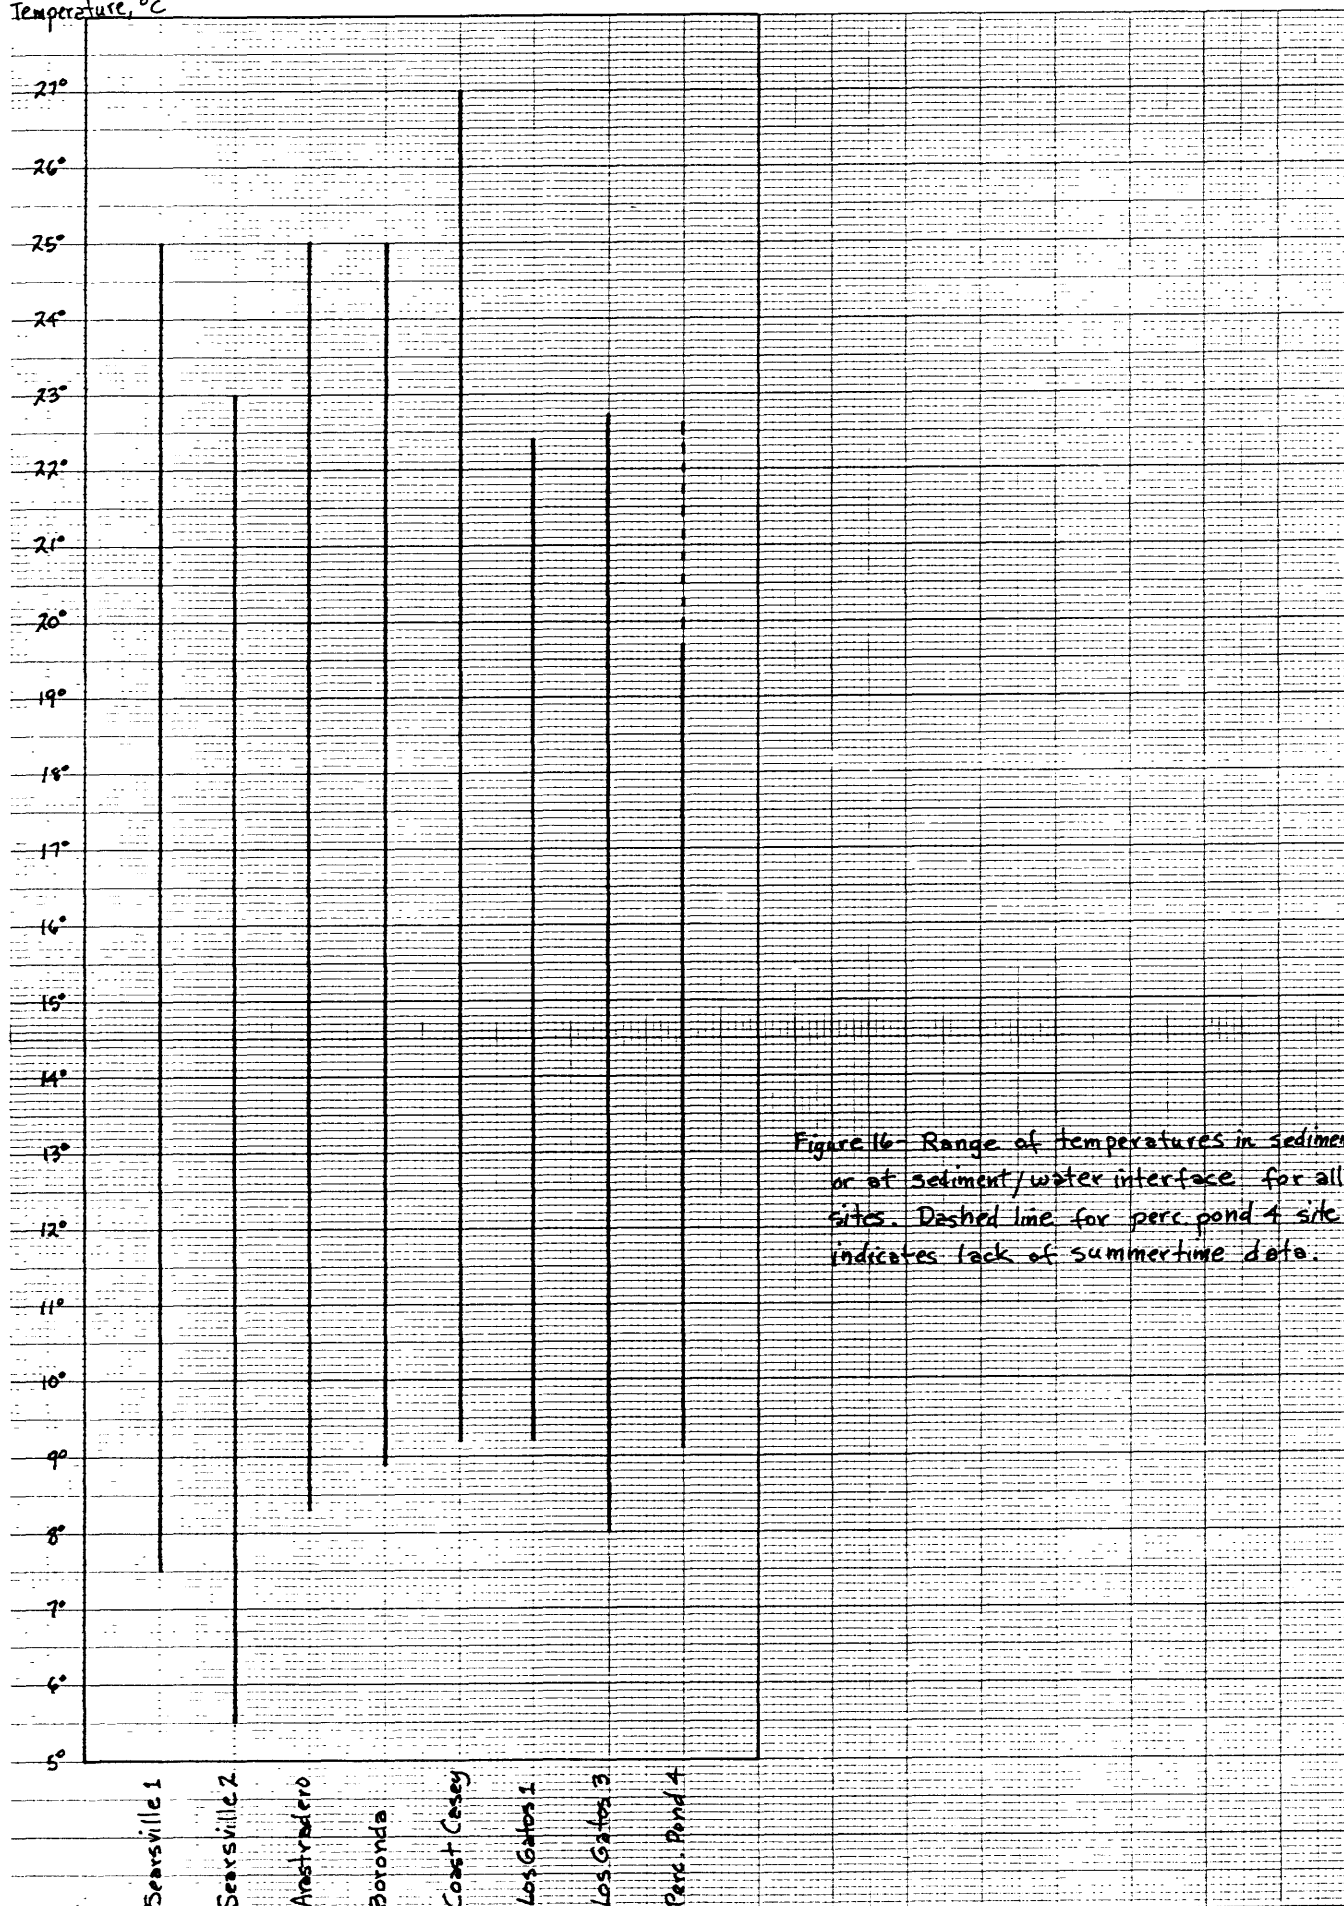 Temperature, °C
27°
26°
25°
24°
23°
22°
21°
20°
19°
18°
17°
16°
15°
14°
13°
12°
11°
10°
9°
8°
7°
6°
5°
Searsville 1
Searsville 2
Arastradero
Boronda
Coast Casey
Los Gatos 1
Los Gatos 3
Perc. Pond 4
Figure 16- Range of temperatures in sediment
or at sediment/water interface for all
sites. Dashed line for perc. pond 4 site
indicates lack of summertime data.